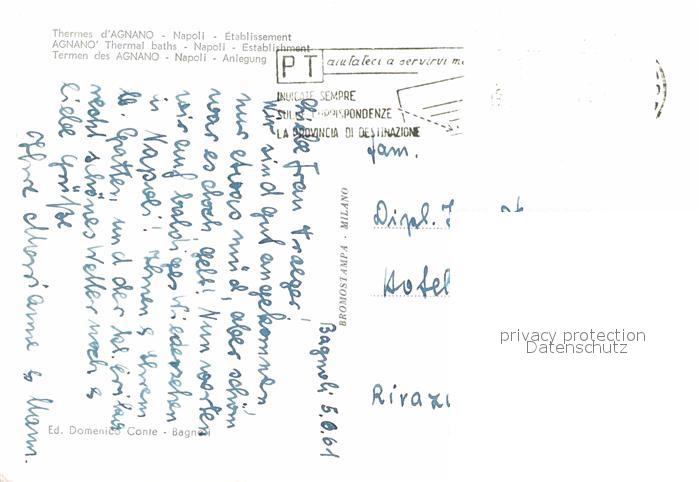 Thermes d'AGNANO - Napoli - Établissement
AGNANO' Thermal baths - Napoli - Establishment
Termen des AGNANO - Napoli - Anlegung
PT aiutateci a servirvi
INDICATE SEMPRE
SULLE CORRISPONDENZE
LA PROVINCIA DI DESTINAZIONE
Bagnoli 5.6.61
Liebe Frau Traeger,
wir sind gut angekommen
nur etwas müd, aber schön
war es doch gell! Nun warten
wir auf baldiges Wiedersehen
in Napoli! Ihnen & Ihrem
lb. Gatten, und der
recht schönes Wetter noch &
liebe Grüße
Ihre Marianne & Mann.
BROMOSTAMPA - MILANO
Fam.
Dipl.
Hotel
Ed. Domenico Conte - Bagnoli
privacy protection
Datenschutz